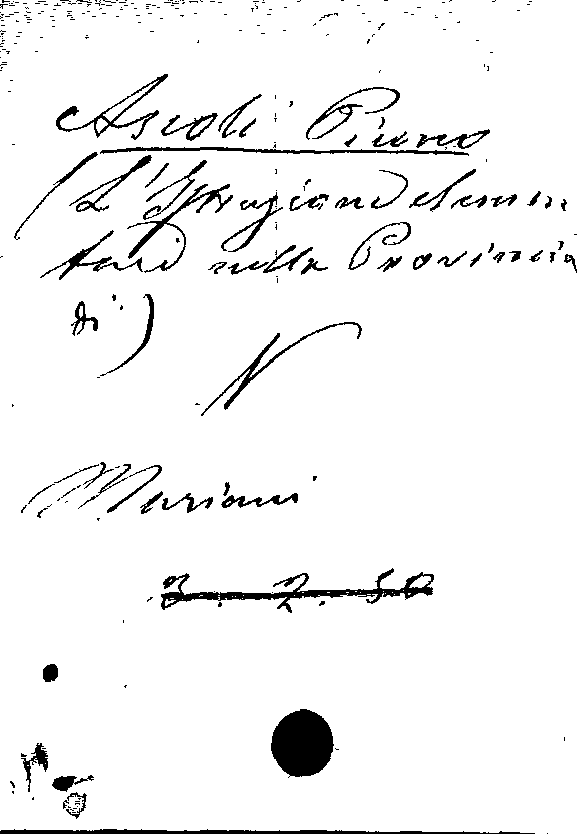 Ascoli Piceno
(L'Istruzione elemen
tare nella Provincia
di)
N
Mariani
3. 2. 50